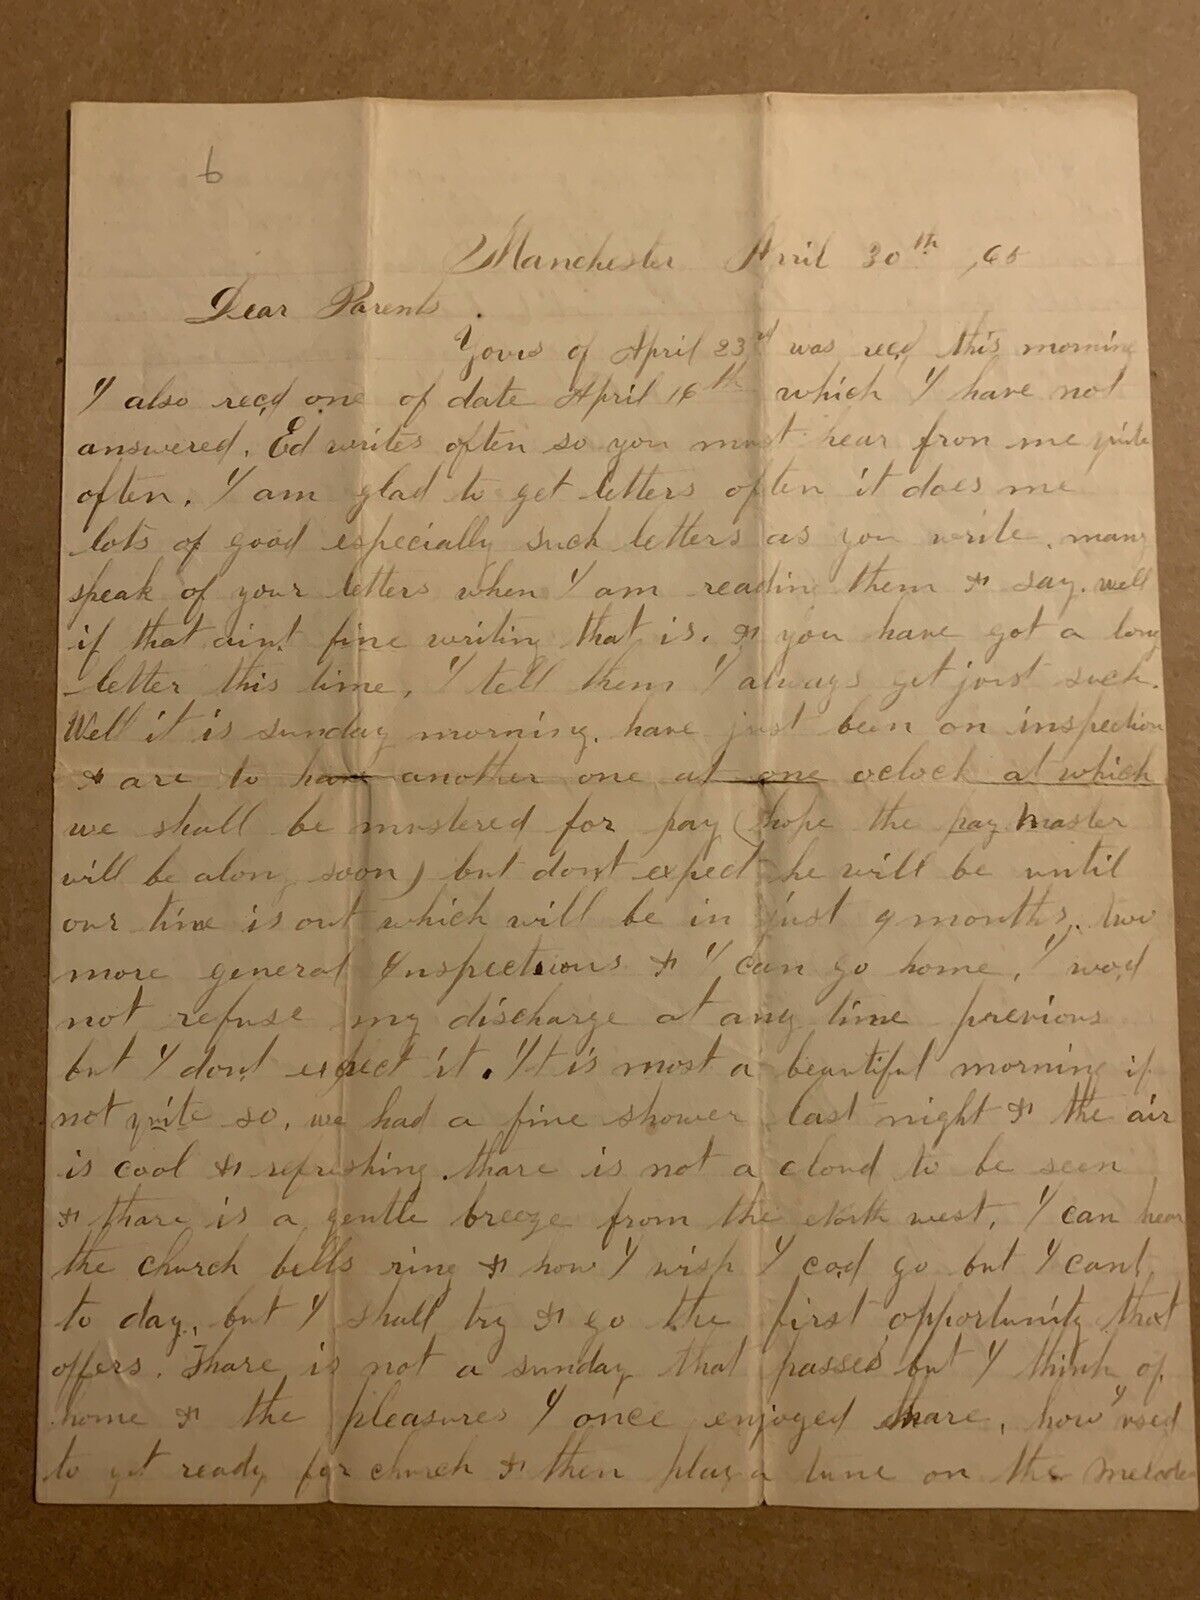 6
Manchester April 30th ,65
Dear Parents.
Yours of April 23d was recd, this morning
I also rec,d one of date April 16th which I have not
answered. Ed writes often so you must hear from me quite
often. I am glad to get letters often it does me
lots of good especially such letters as you write. many
speak of your letters when I am reading them & say. well
if that aint fine writing that is. & you have got a long
letter this time, I tell them I always get just such.
Well it is sunday morning. have just been on inspection
& are to have another one at one oclock at which
we shall be mustered for pay (hope the pay Master
will be along soon) but dont expect he will be until
our time is out which will be in just 4 months, two
more general Inspections & I can go home. I wo,d
not refuse my discharge at any time previous
but I dont expect it. It is most a beautiful morning if
not quite so. we had a fine shower last night & the air
is cool & refreshing. thare is not a cloud to be seen
& thare is a gentle breeze from the North west. I can hear
the church bells ring & how I wish I co,d go but I cant
to day, but I shall try & go the first opportunity that
offers. Thare is not a sunday that passes but I think of
home & the pleasures I once enjoyed thare, how I used
to get ready for church & then play a tune on the